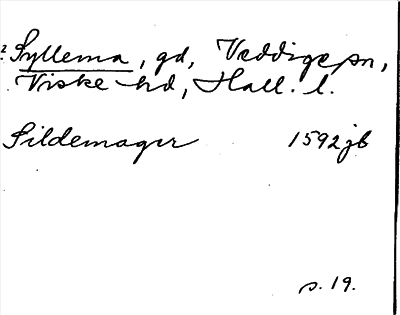 2 Syllema, gd, Veddige sn,
Viske hd, Hall. l.
Sildemager 1592 jb
s. 19.